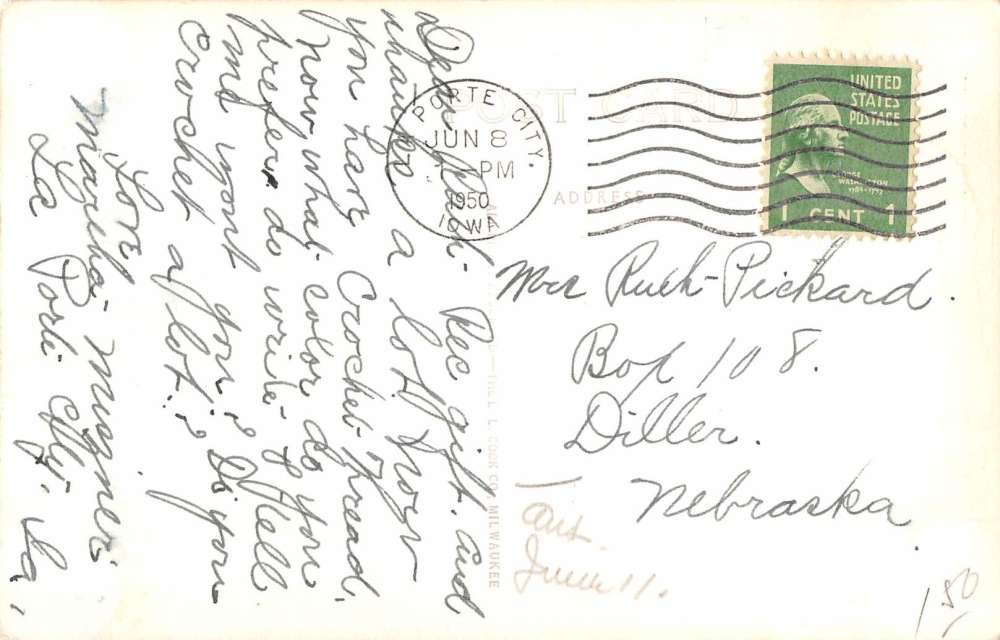 Dear Ruth - Rec gift. and
thankse a lot. Now
you have Crochet Thread,
now what color do you
prefer. do write & tell
me wont you? Do you
Crochet a lot?
Love
La Porte City. Ia.
POST CARD
ADDRESS
LA PORTE CITY.
JUN 8
PM
1950
IOWA
UNITED
STATES
POSTAGE
GEORGE
WASHINGTON
1789-1797
1 CENT 1
Mrs Ruth Pickard.
Box 108.
Diller.
Nebraska.
THE L. L. COOK CO., MILWAUKEE
Ans.
June 11.
1 50